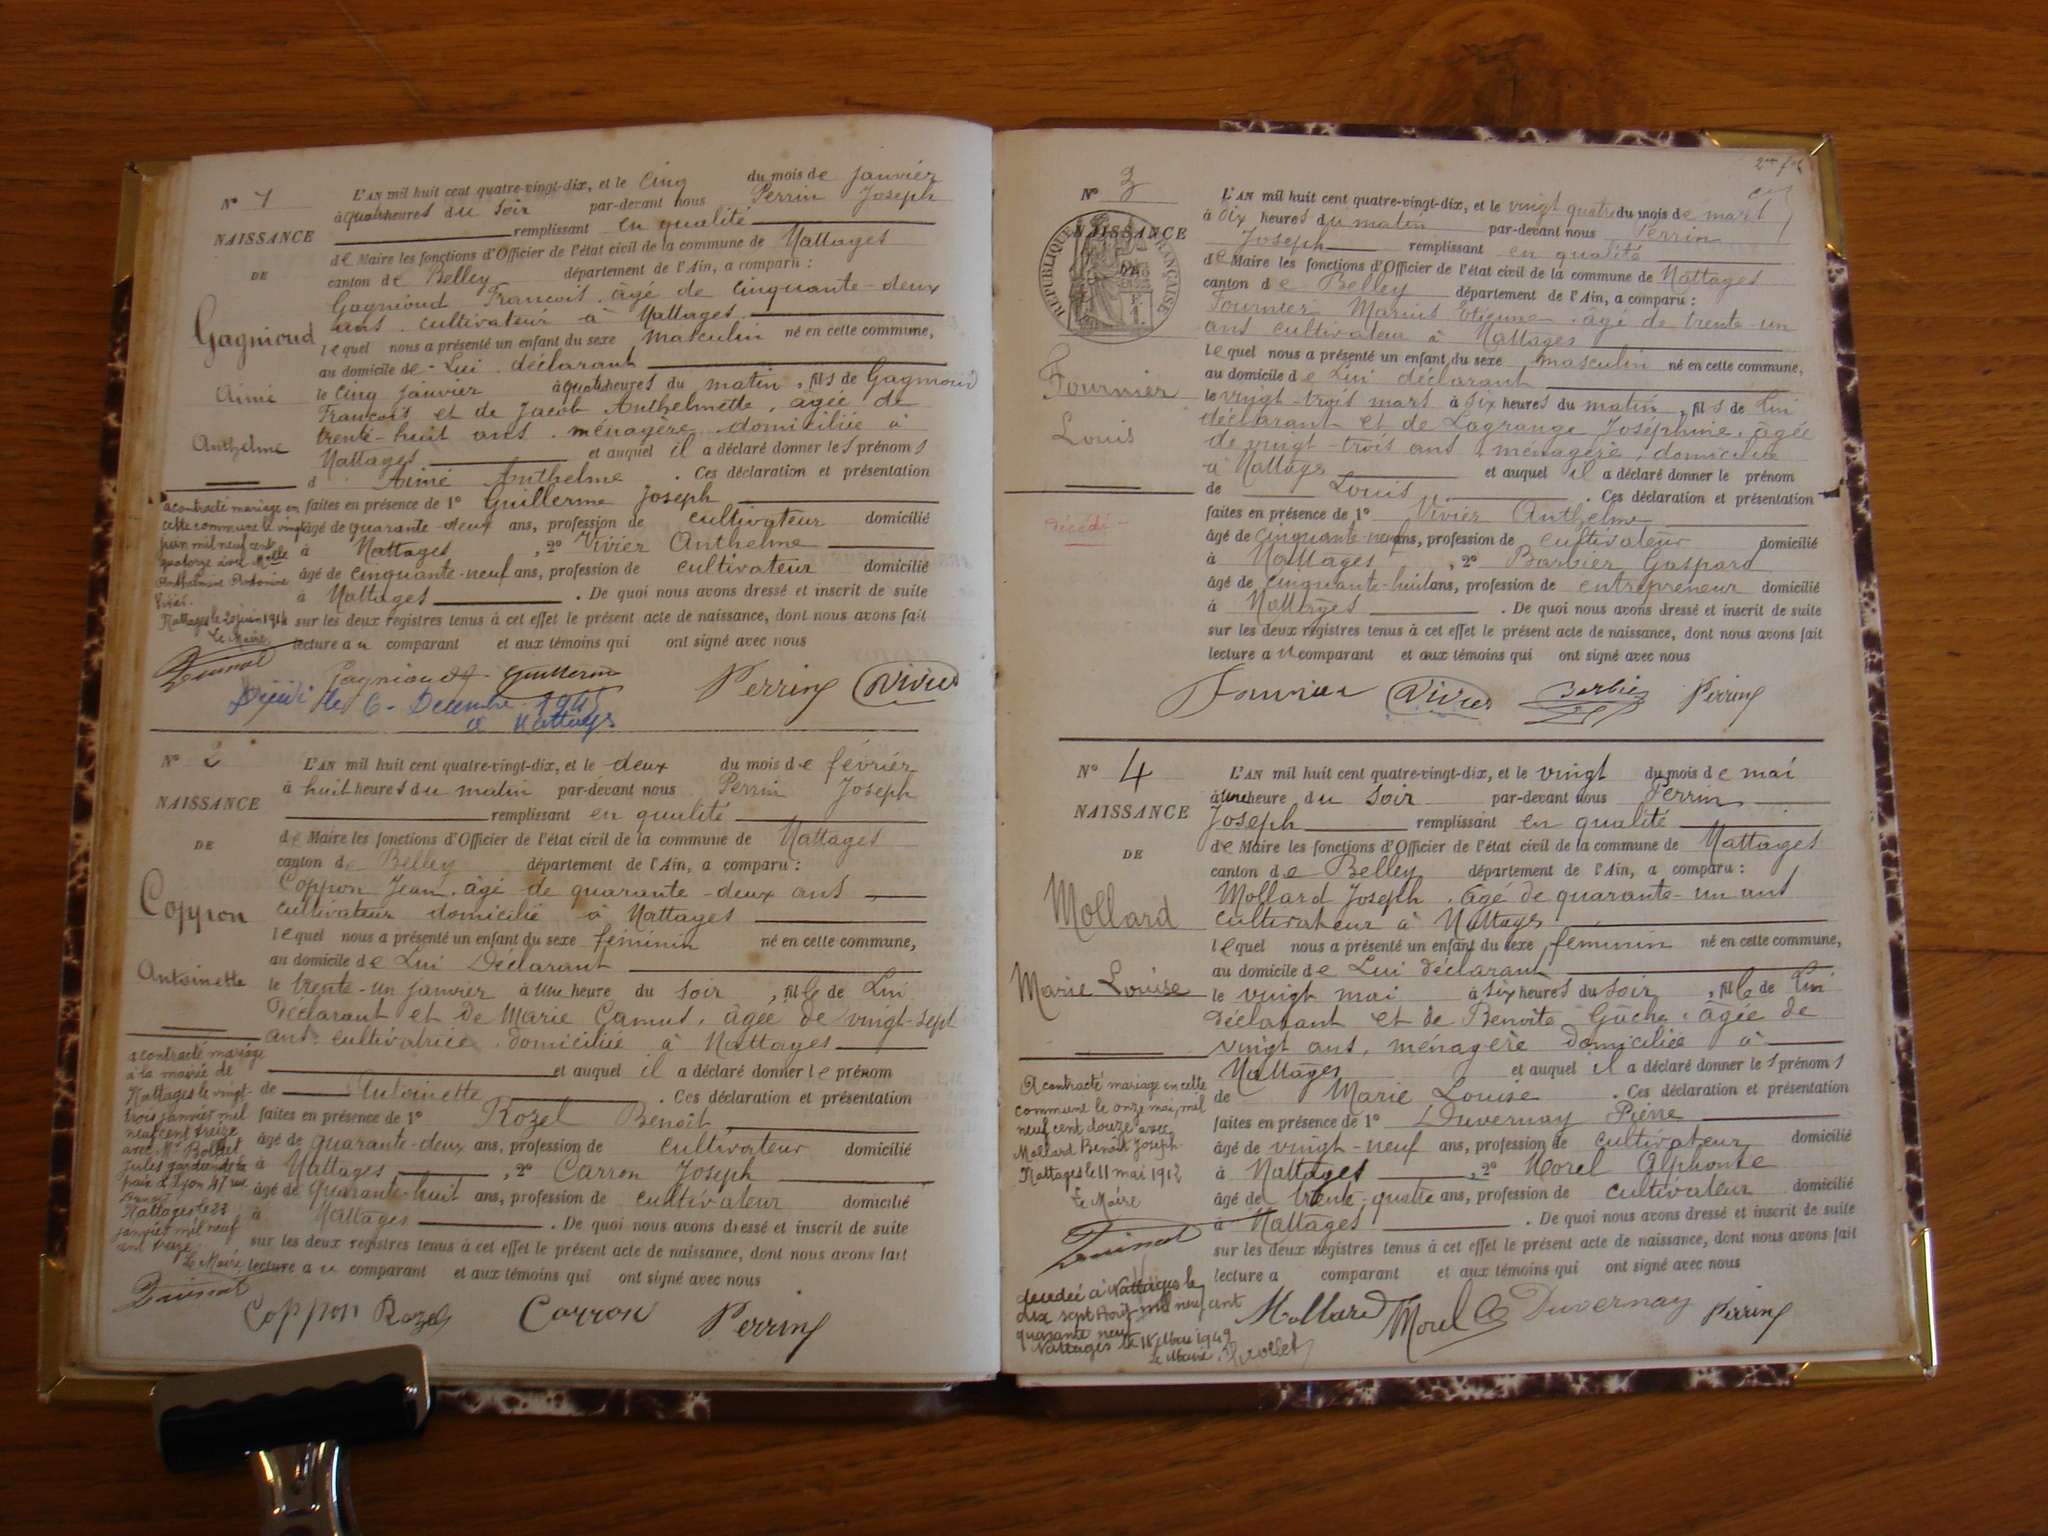 N° 1
NAISSANCE
DE
Gagnioud
Aimé
Anthelme
L'AN mil huit cent quatre-vingt-dix, et le cinq du mois de janvier
à quatre heures du soir par-devant nous Perrin Joseph
remplissant en qualité
de Maire les fonctions d'Officier de l'état civil de la commune de Nattages
canton de Belley département de l'Ain, a comparu :
Gagnioud François, âgé de cinquante-deux
ans, cultivateur à Nattages
lequel nous a présenté un enfant du sexe masculin né en cette commune,
au domicile de Lui déclarant
le cinq janvier à quatre heures du matin, fils de Gagnioud
François et de Jacob Anthelmette, agée de
trente-huit ans, ménagère domiciliée à
Nattages et auquel il a déclaré donner les prénoms
d Aimé Anthelme. Ces déclaration et présentation
faites en présence de 1° Guillerme Joseph
âgé de quarante-deux ans, profession de cultivateur domicilié
à Nattages, 2° Vivier Anthelme
âgé de cinquante-neuf ans, profession de cultivateur domicilié
à Nattages. De quoi nous avons dressé et inscrit de suite
sur les deux registres tenus à cet effet le présent acte de naissance, dont nous avons fait
lecture au comparant et aux témoins qui ont signé avec nous
a contracté mariage en
cette commune le vingt
juin mil neuf cent
quatorze avec Melle
Anthelmine
Nattages le 20 juin 1914
Le Maire
Gagnioud Guillerme Perrin Vivier
Décédé le 6 Décembre
à Nattages
N° 2
NAISSANCE
DE
Coppon
Antoinette
L'AN mil huit cent quatre-vingt-dix, et le deux du mois de février
à huit heures du matin par-devant nous Perrin Joseph
remplissant en qualité
de Maire les fonctions d'Officier de l'état civil de la commune de Nattages
canton de Belley département de l'Ain, a comparu :
Coppon Jean, âgé de quarante-deux ans
cultivateur domicilié à Nattages
lequel nous a présenté un enfant du sexe féminin né en cette commune,
au domicile de Lui Déclarant
le trente-un janvier à une heure du soir, fille de Lui
Déclarant et de Marie Camus, âgée de vingt-sept
ans, cultivatrice, domiciliée à Nattages
et auquel il a déclaré donner le prénom
de Antoinette. Ces déclaration et présentation
faites en présence de 1° Rozel Benoît
âgé de quarante-deux ans, profession de cultivateur domicilié
à Nattages, 2° Carron Joseph
âgé de quarante-huit ans, profession de cultivateur domicilié
à Nattages. De quoi nous avons dressé et inscrit de suite
sur les deux registres tenus à cet effet le présent acte de naissance, dont nous avons fait
lecture au comparant et aux témoins qui ont signé avec nous
a contracté mariage
à la mairie de
Nattages le vingt-
trois janvier mil
neuf cent treize
avec Mr Bollet
Jules gardien de la
paix à Lyon 41 rue
Nattages le 23
janvier mil neuf
cent treize
Le Maire
Coppon Rozel Carron Perrin
N° 3
NAISSANCE
DE
RÉPUBLIQUE FRANÇAISE
Fournier
Louis
L'AN mil huit cent quatre-vingt-dix, et le vingt quatre du mois de mars
à dix heures du matin par-devant nous Perrin
Joseph remplissant en qualité
de Maire les fonctions d'Officier de l'état civil de la commune de Nattages
canton de Belley département de l'Ain, a comparu :
Fournier Marius Etienne, âgé de trente-un
ans cultivateur à Nattages
lequel nous a présenté un enfant du sexe masculin né en cette commune,
au domicile de Lui déclarant
le vingt-trois mars à six heures du matin, fils de Lui
déclarant et de Lagrange Joséphine, âgée
de vingt-trois ans, ménagère, domiciliée
à Nattages et auquel il a déclaré donner le prénom
de Louis. Ces déclaration et présentation
faites en présence de 1° Vivier Anthelme
âgé de cinquante-neuf ans, profession de cultivateur domicilié
à Nattages, 2° Barbier Gaspard
âgé de cinquante-huit ans, profession de entrepreneur domicilié
à Nattages. De quoi nous avons dressé et inscrit de suite
sur les deux registres tenus à cet effet le présent acte de naissance, dont nous avons fait
lecture au comparant et aux témoins qui ont signé avec nous
Décédé
Fournier Vivier Barbier Perrin
N° 4
NAISSANCE
DE
Mollard
Marie Louise
L'AN mil huit cent quatre-vingt-dix, et le vingt du mois de mai
à une heure du soir par-devant nous Perrin
Joseph remplissant en qualité
de Maire les fonctions d'Officier de l'état civil de la commune de Nattages
canton de Belley département de l'Ain, a comparu :
Mollard Joseph, âgé de quarante-un ans
cultivateur à Nattages
lequel nous a présenté un enfant du sexe féminin né en cette commune,
au domicile de Lui déclarant
le vingt mai à six heures du soir, fille de Lui
déclarant et de Benoîte Gache, âgée de
vingt ans, ménagère domiciliée à
Nattages et auquel il a déclaré donner les prénoms
de Marie Louise. Ces déclaration et présentation
faites en présence de 1° Duvernay Pierre
âgé de vingt-neuf ans, profession de cultivateur domicilié
à Nattages, 2° Morel Alphonse
âgé de trente-quatre ans, profession de cultivateur domicilié
à Nattages. De quoi nous avons dressé et inscrit de suite
sur les deux registres tenus à cet effet le présent acte de naissance, dont nous avons fait
lecture a comparant et aux témoins qui ont signé avec nous
A contracté mariage en cette
commune le onze mai, mil
neuf cent douze avec
Mollard Benoît Joseph
Nattages le 11 mai 1912
Le Maire
décédée à Nattages le
dix sept Août mil neuf cent
quarante neuf
Nattages le 18 1949
Le Maire
Mollard Morel Duvernay Perrin